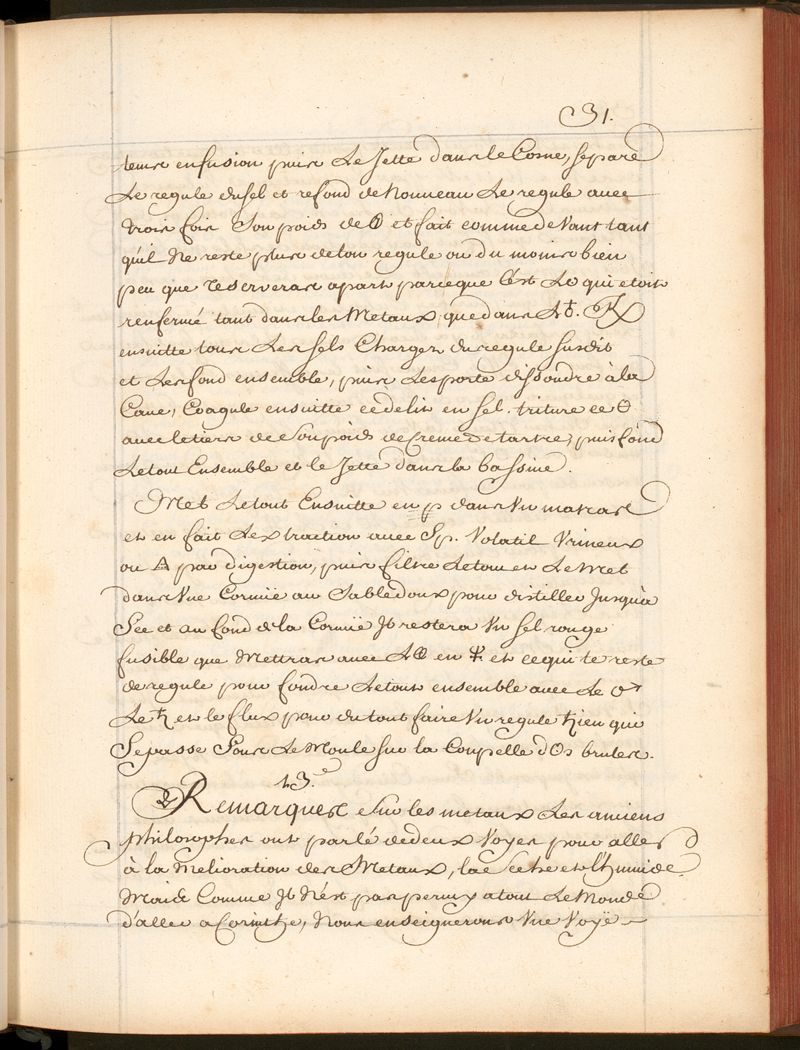 31.
tems en fusion puis Le Jette dans le Cone, separe
Le regule du sel et refond de Nouveau Le regule avec
trois fois Son poids de 🜕 et fait comme de Vant tant
qu'il Ne reste plus de ton regule ou du moins bien
peu que reserveras apart parceque C'est Le qui etoit
renfermé tant dans les Metaux que dans L'♁. ℞
ensuitte tous Les sels Charges du regule susdit
et Les fond ensemble, puis Les porte dissoudre à la
Cave, Coagule ensuitte ce delin en sel. triture ce 🜔
avec le tiers de Son poids de Creme de tartre, puis fond
Le tout Ensemble et le Jette dans la bassine.
Met Le tout Ensuitte en p dans Un matras
et en fait L'extraction avec Sp. Volatil Urineux
ou 🜂 par digestion, puis filtre Le tout et Le Met
dans Une Cornüe au Sable doux pour distiller Jusqu'à
Sec et au fond de la Cornüe Jl restera Un sel rouge
fusible que Mettras avec L'☉ en et ce qui te reste
de regule pour fondre Le tout ensemble avec Le ♂
Le ♄ et le flux pour du tout faire Un regule ♄ien qui
Se passe Sous Le Moule sur la Coupelle d'Os brules.
13.e
& Remarques Sur les metaux Les anciens
philosophes ont parlé de deux Voyes pour aller
à la Melioration des Metaux, la Seche et l'humide.
Mais Comme Jl N'est pas permis a tout Le Monde
d'aller a Corinthe, Nous enseignerons Une Voÿe